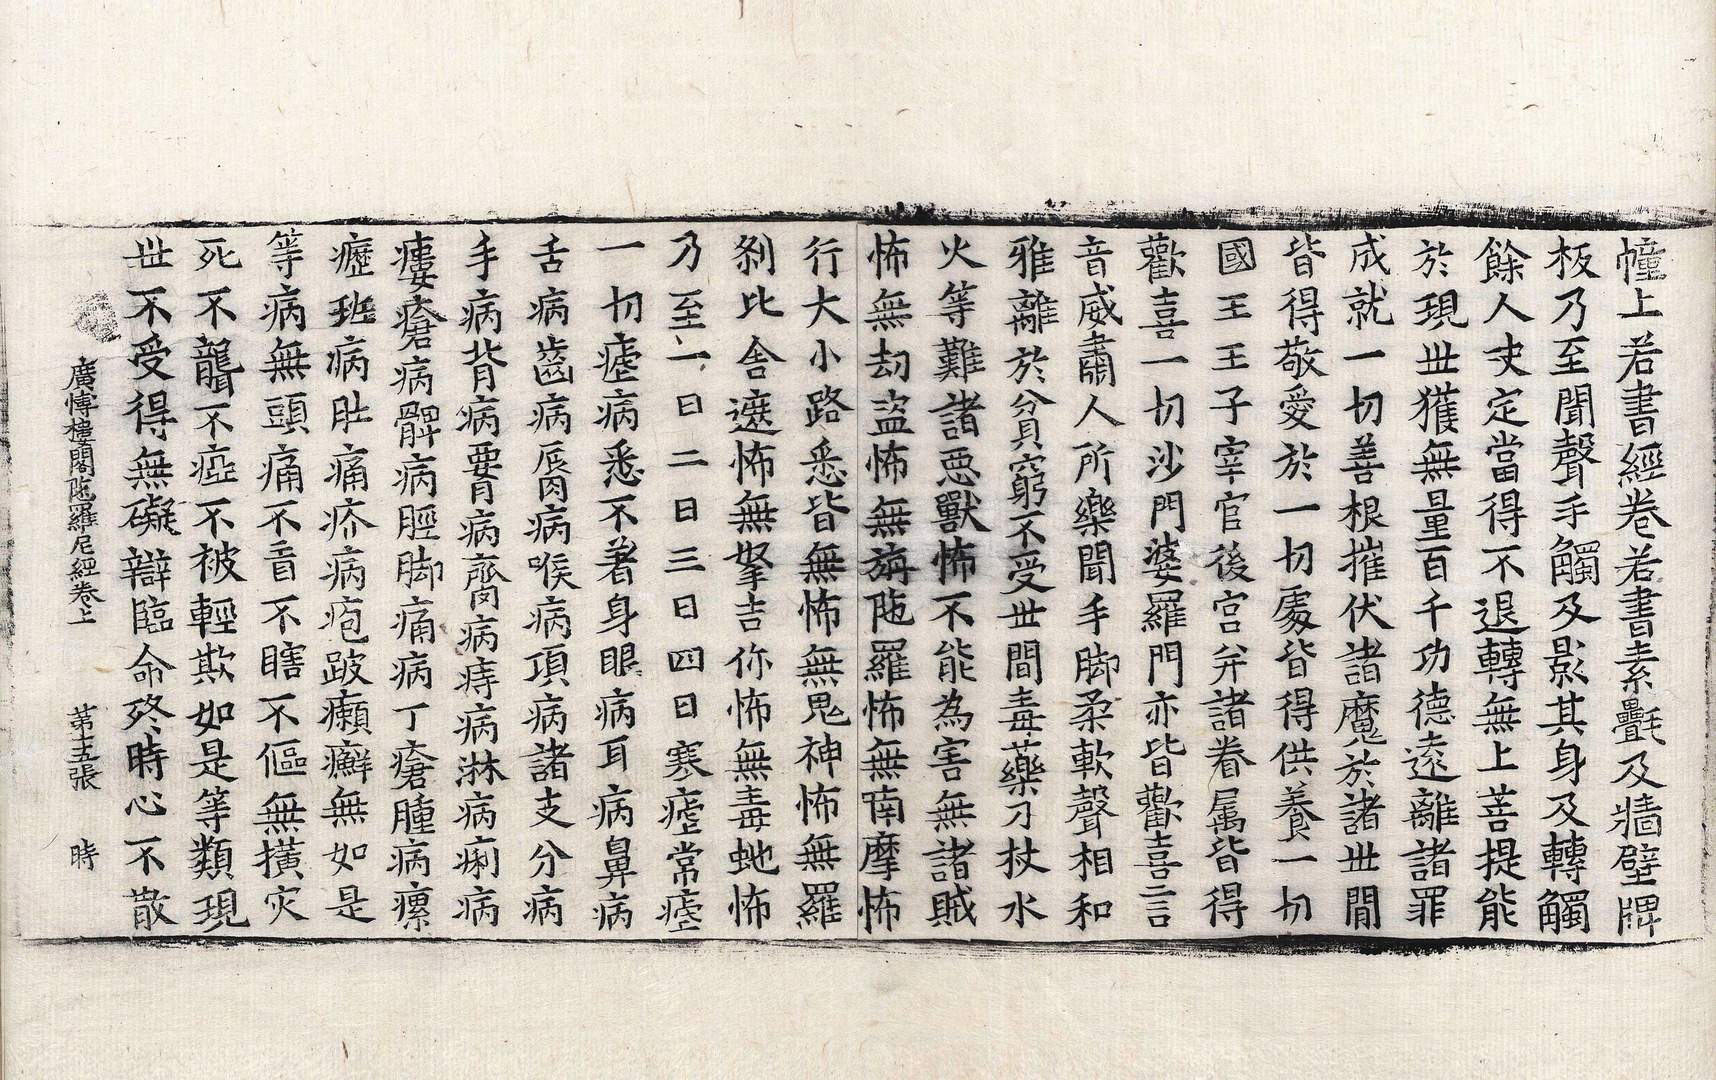 幢上若書經卷若書素疊及牆壁牌
板乃至聞聲手觸及影其身及轉觸
餘人史定當得不退轉無上菩提能
於現世獲無量百千功德遠離諸罪
成就一切善根摧伏諸魔於諸世間
皆得敬愛於一切處皆得供養一切
國王王子宰官後宮并諸眷属皆得
歡喜一切沙門婆羅門亦皆歡喜言
音威肅人所樂聞手脚柔軟聲相和
雅離於貧窮不受世間毒藥刀杖水
火等難諸惡獸怖不能為害無諸賊
怖無劫盜怖無旃陁羅怖無南摩怖
行大小路悉皆無怖無鬼神怖無羅
刹比舍遮怖無拏吉你怖無毒虵怖
乃至一日二日三日四日寒瘧常瘧
一切瘧病悉不著身眼病耳病鼻病
舌病齒病脣病喉病項病諸支分病
手病背病要病齊病痔病淋病痢病
瘻瘡病髀病脛脚痛病丁瘡腫病瘰
癧班病肚痛疥病疱跛癩癬無如是
等病無頭痛不盲不瞎不傴無撗灾
死不聾不瘂不被輕欺如是等類現
世不受得無礙辯臨命終時心不散
廣愽樓閣陁羅尼經卷上 第十五張 時